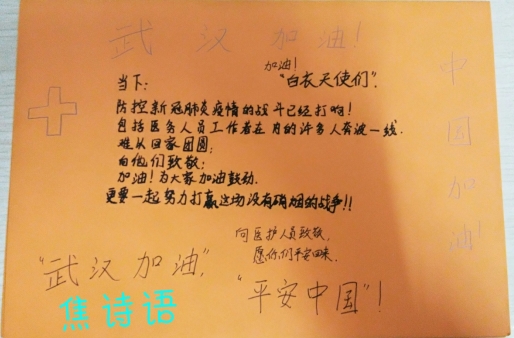 武汉加油!
加油!
"白衣天使们".
当下:
防控新冠肺炎疫情的战斗已经打响!
包括医务人员工作者在内的许多人奔波一线.
难以回家团圆;
向他们致敬;
加油!为大家加油鼓劲.
更要一起努力打赢这场没有硝烟的战争!!
向医护人员致敬,
愿你们平安回来.
"武汉加油,
"平安中国"!
中国加油!
焦诗语